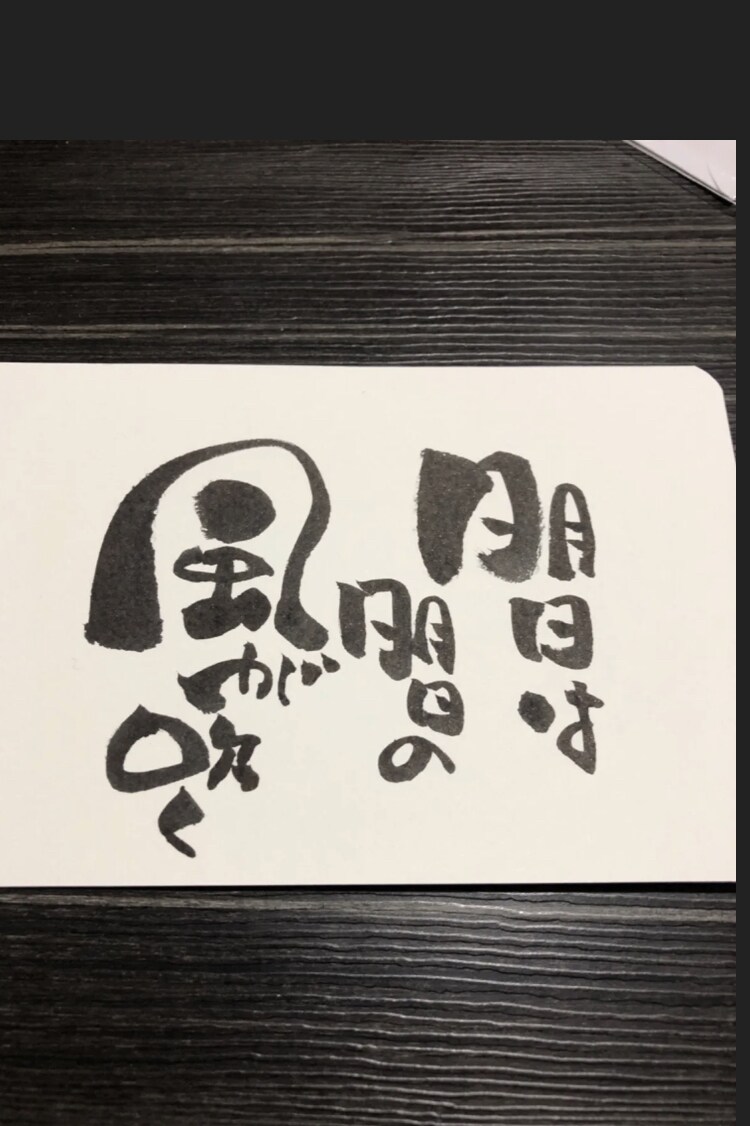 明日は
明日の
風が吹く